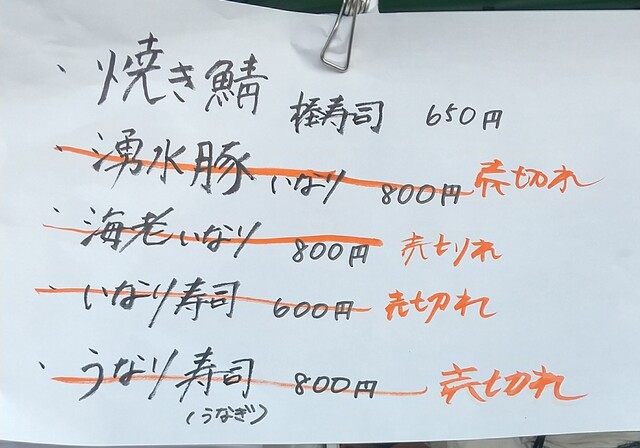 、焼き鯖 棒寿司 650円
、湧水豚 いなり 800円 売切れ
、海老いなり 800円 売切れ
、いなり寿司 600円 売切れ
、うなり寿司 800円 売切れ
(うなぎ)